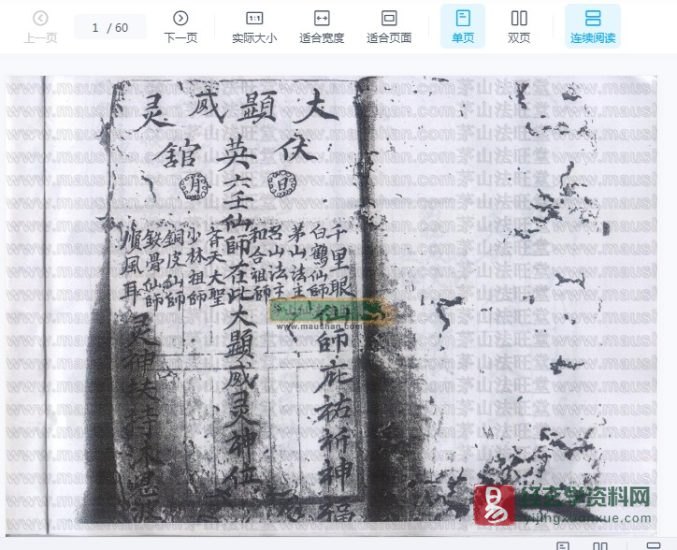 上一页
1 / 60
下一页
实际大小
适合宽度
适合页面
单页
双页
连续阅读
大顕威灵
伏英舘
日
月
千里眼
白鶴仙師
茅山法主
和合祖師
仙師庇祐祈神福
六壬仙師在此大顕威灵神位
斉天大聖
少林祖師
銅皮仙師
鉄骨仙師
順風耳
灵神扶持
www.maushan.com
www.maushan.com茅山法旺堂
易玄学资料网
yijingxuanxue.com